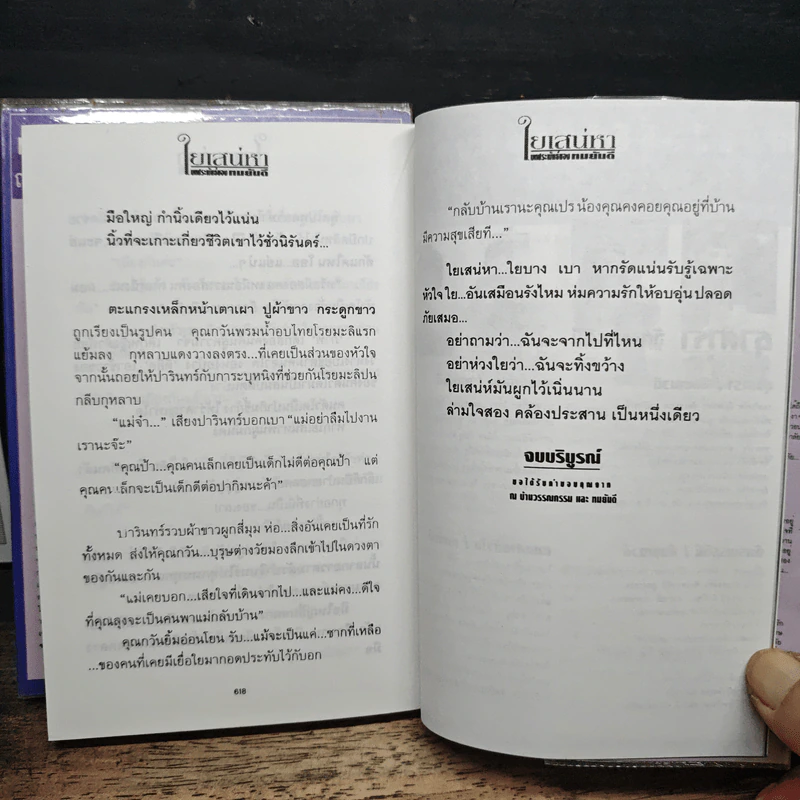 ใยเสน่หา
ทมยันตี
มือใหญ่ กำนิ้วเดียวไว้แน่น
นิ้วที่จะเกาะเกี่ยวชีวิตเขาไว้ชั่วนิรันดร์...
ตะแกรงเหล็กหน้าเตาเผา ปูผ้าขาว กระดูกขาว
ถูกเรียงเป็นรูปคน คุณกวินพรมน้ำอบไทยโรยมะลิแรก
แย้มลง กุหลาบแดงวางลงตรง...ที่เคยเป็นส่วนของหัวใจ
จากนั้นถอยให้ปารินทร์กับการะบุหนิงที่ช่วยกันโรยมะลิปน
กลีบกุหลาบ
“แม่จ๋า...” เสียงปารินทร์บอกเบา “แม่อย่าลืมไปงาน
เรานะจ๊ะ”
“คุณป้า...คุณคนเล็กเคยเป็นเด็กไม่ดีต่อคุณป้า แต่
คุณคนเล็กจะเป็นเด็กดีต่อปากิมนะค้า”
ปารินทร์รวบผ้าขาวผูกสี่มุม ห่อ...สิ่งอันเคยเป็นที่รัก
ทั้งหมด ส่งให้คุณกวิน...บุรุษต่างวัยมองลึกเข้าไปในดวงตา
ของกันและกัน
“แม่เคยบอก...เสียใจที่เดินจากไป...และแม่คง...ดีใจ
ที่คุณลุงจะเป็นคนพาแม่กลับบ้าน”
คุณกวินยิ้มอ่อนโยน รับ...แม้จะเป็นแค่...ซากที่เหลือ
...ของคนที่เคยมีเยื่อใยมากอดประทับไว้กับอก
618
ใยเสน่หา
ทมยันตี
“กลับบ้านเรานะคุณเปร น้องคุณคงคอยคุณอยู่ที่บ้าน
มีความสุขเสียที...”
ใยเสน่หา...ใยบาง เบา หากรัดแน่นรับรู้เฉพาะ
หัวใจ ใย...อันเสมือนรังไหม ห่มความรักให้อบอุ่น ปลอด
ภัยเสมอ...
อย่าถามว่า...ฉันจะจากไปที่ไหน
อย่าห่วงใยว่า...ฉันจะทิ้งขว้าง
ใยเสน่ห์มันผูกไว้เนิ่นนาน
ล่ามใจสอง คล้องประสาน เป็นหนึ่งเดียว
จบบริบูรณ์
ขอได้รับคำขอบคุณจาก
ณ บ้านวรรณกรรม และ ทมยันตี